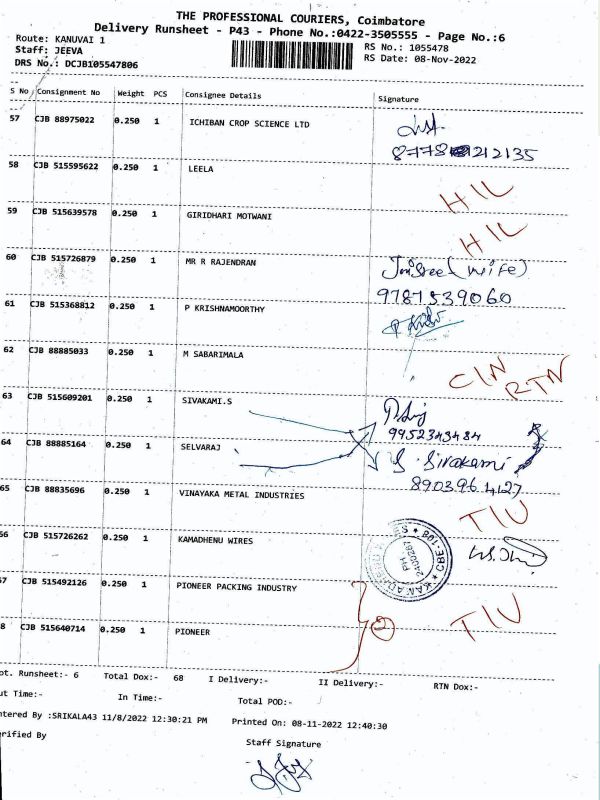 THE PROFESSIONAL COURIERS, Coimbatore
Delivery Runsheet - P43 - Phone No.:0422-3505555 - Page No.:6
Route: KANUVAI 1
Staff: JEEVA
DRS No.: DCJB105547806
RS No.: 1055478
RS Date: 08-Nov-2022
S No Consignment No Weight PCS Consignee Details Signature
57 CJB 88975022 0.250 1 ICHIBAN CROP SCIENCE LTD
58 CJB 515595622 0.250 1 LEELA HIL
59 CJB 515639578 0.250 1 GIRIDHARI MOTWANI HIL
60 CJB 515726879 0.250 1 MR R RAJENDRAN (wife)
9787539060
61 CJB 515368812 0.250 1 P KRISHNAMOORTHY
62 CJB 88885033 0.250 1 M SABARIMALA CIN
RTN
63 CJB 515609201 0.250 1 SIVAKAMI.S
9952343484
64 CJB 88885164 0.250 1 SELVARAJ S. Sivakami
8903964127
65 CJB 88835696 0.250 1 VINAYAKA METAL INDUSTRIES TIU
66 CJB 515726262 0.250 1 KAMADHENU WIRES
CBE-108
67 CJB 515492126 0.250 1 PIONEER PACKING INDUSTRY
2 TIU
8 CJB 515640714 0.250 1 PIONEER
ot. Runsheet:- 6 Total Dox:- 68 I Delivery:- II Delivery:- RTN Dox:-
ut Time:- In Time:- Total POD:-
ntered By :SRIKALA43 11/8/2022 12:30:21 PM Printed On: 08-11-2022 12:40:30
erified By
Staff Signature